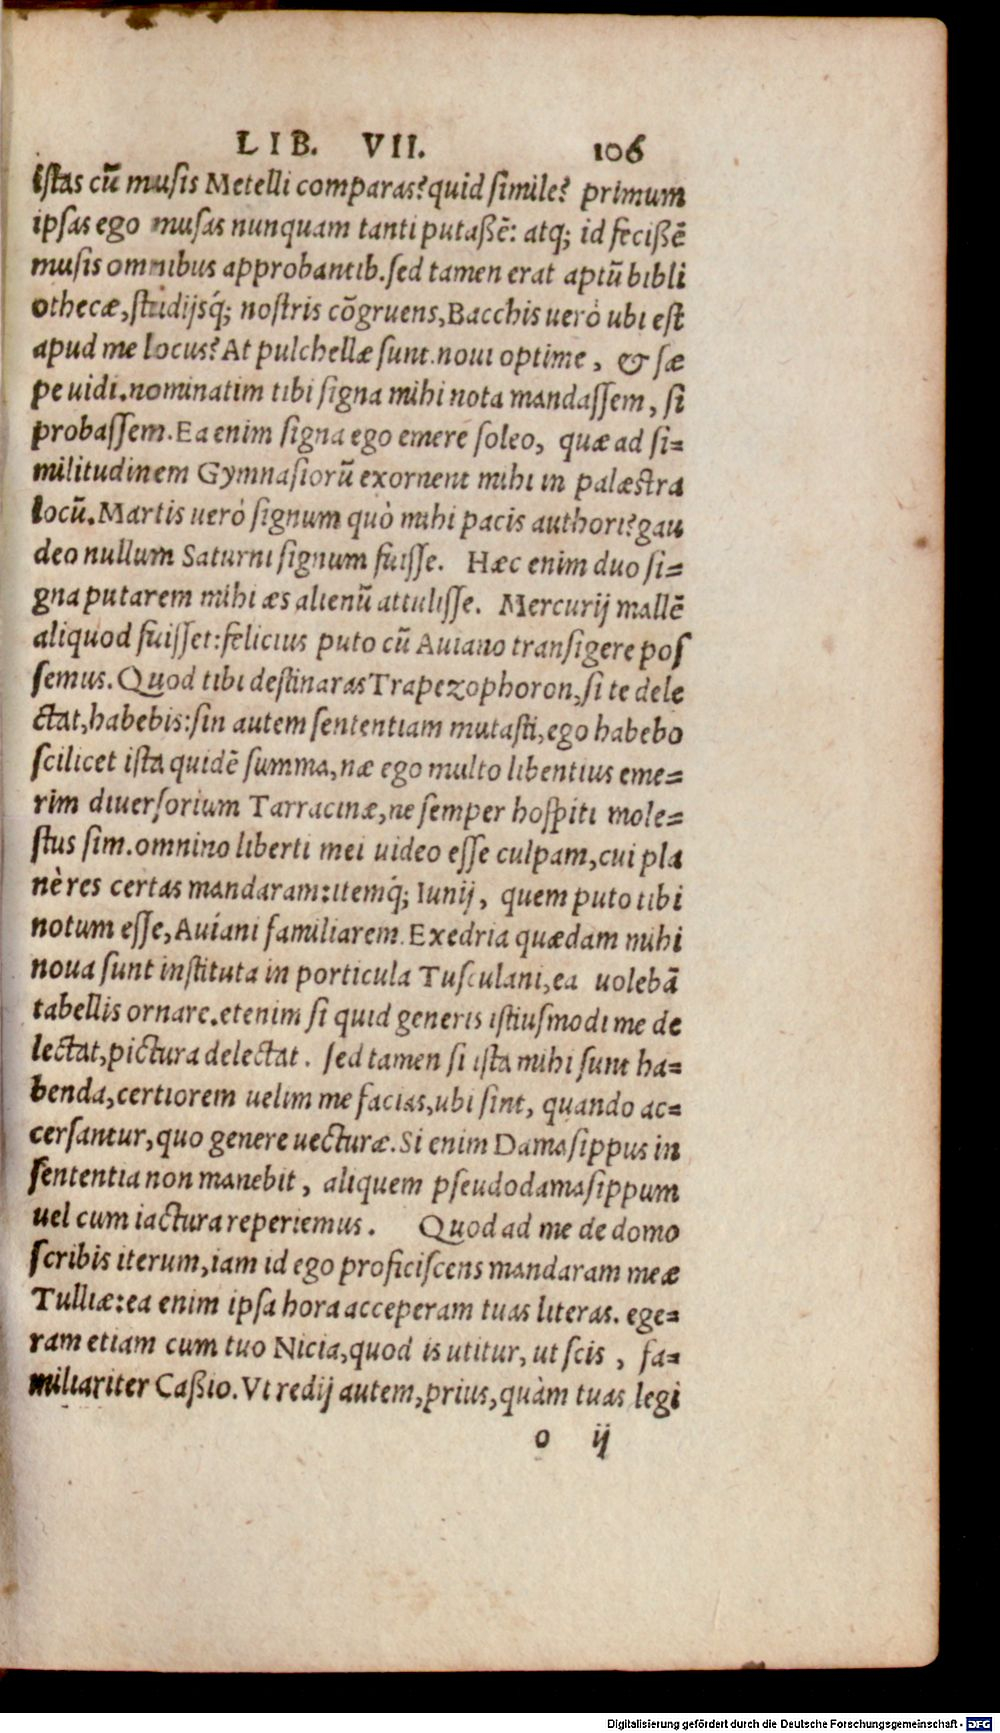 LIB. VII. 106
istas cū musis Metelli comparas? quid simile? primum
ipsas ego musas nunquam tanti putaßē: atq; id fecißē
musis omnibus approbantib. sed tamen erat aptū bibli
othecæ, studijsq́; nostris cōgruens, Bacchis uerò ubi est
apud me locus? At pulchellæ sunt. noui optime, & sæ
pe uidi. nominatim tibi signa mihi nota mandassem, si
probassem. Ea enim signa ego emere soleo, quæ ad si=
militudinem Gymnasiorū exornent mihi in palæstra
locū. Martis uerò signum quò mihi pacis authori? gau
deo nullum Saturni signum fuisse. Hæc enim duo si=
gna putarem mihi æs alienū attulisse. Mercurij mallē
aliquod fuisset: felicius puto cū Auiano transigere pos
semus. Quod tibi destinaras Trapezophoron, si te dele
ctat, habebis: sin autem sententiam mutasti, ego habebo
scilicet ista quidē summa, næ ego multo libentius eme=
rim diuersorium Tarracinæ, ne semper hospiti mole=
stus sim. omnino liberti mei uideo esse culpam, cui pla
nè res certas mandaram: itemq́; Iunij, quem puto tibi
notum esse, Auiani familiarem. Exedria quædam mihi
noua sunt instituta in porticula Tusculani, ea uolebā
tabellis ornare. etenim si quid generis istiusmodi me de
lectat, pictura delectat. sed tamen si ista mihi sunt ha=
benda, certiorem uelim me facias, ubi sint, quando ac=
cersantur, quo genere uecturæ. Si enim Damasippus in
sententia non manebit, aliquem pseudodamasippum
uel cum iactura reperiemus. Quod ad me de domo
scribis iterum, iam id ego proficiscens mandaram meæ
Tulliæ: ea enim ipsa hora acceperam tuas literas. ege=
ram etiam cum tuo Nicia, quod is utitur, ut scis, fa=
miliariter Caßio. Vt redij autem, prius, quàm tuas legi
o ij
Digitalisierung gefördert durch die Deutsche Forschungsgemeinschaft - DFG